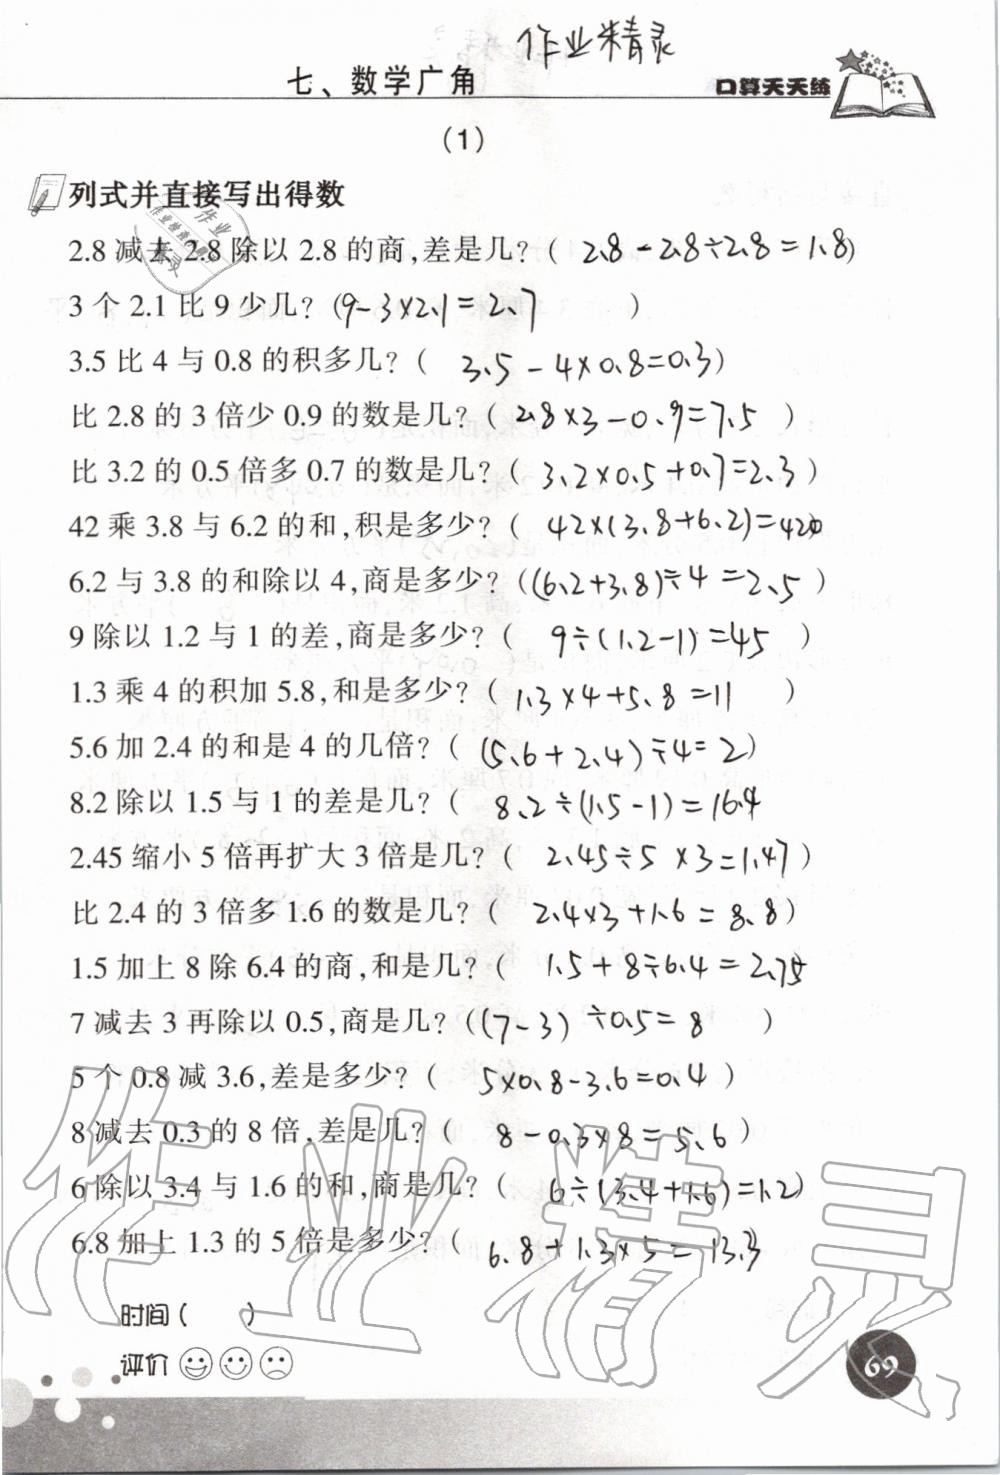 作业精灵
七、数学广角
口算天天练
(1)
列式并直接写出得数
2.8减去2.8除以2.8的商,差是几?( 2.8-2.8÷2.8=1.8)
3个2.1比9少几?(9-3×2.1=2.7 )
3.5比4与0.8的积多几?( 3.5-4×0.8=0.3)
比2.8的3倍少0.9的数是几?( 2.8×3-0.9=7.5 )
比3.2的0.5倍多0.7的数是几?( 3.2×0.5+0.7=2.3 )
42乘3.8与6.2的和,积是多少?( 42×(3.8+6.2)=420
6.2与3.8的和除以4,商是多少?((6.2+3.8)÷4=2.5 )
9除以1.2与1的差,商是多少?( 9÷(1.2-1)=45 )
1.3乘4的积加5.8,和是多少?( 1.3×4+5.8=11 )
5.6加2.4的和是4的几倍?( (5.6+2.4)÷4=2)
8.2除以1.5与1的差是几?( 8.2÷(1.5-1)=16.4
2.45缩小5倍再扩大3倍是几?( 2.45÷5×3=1.47)
比2.4的3倍多1.6的数是几?( 2.4×3+1.6=8.8)
1.5加上8除6.4的商,和是几?( 1.5+8÷6.4=2.75
7减去3再除以0.5,商是几?((7-3)÷0.5=8 )
5个0.8减3.6,差是多少?( 5×0.8-3.6=0.4 )
8减去0.3的8倍,差是几?( 8-0.3×8=5.6 )
6除以3.4与1.6的和,商是几?( 6÷(3.4+1.6)=1.2)
6.8加上1.3的5倍是多少?( 6.8+1.3×5=13.3
时间( )
评价
69
作业精灵